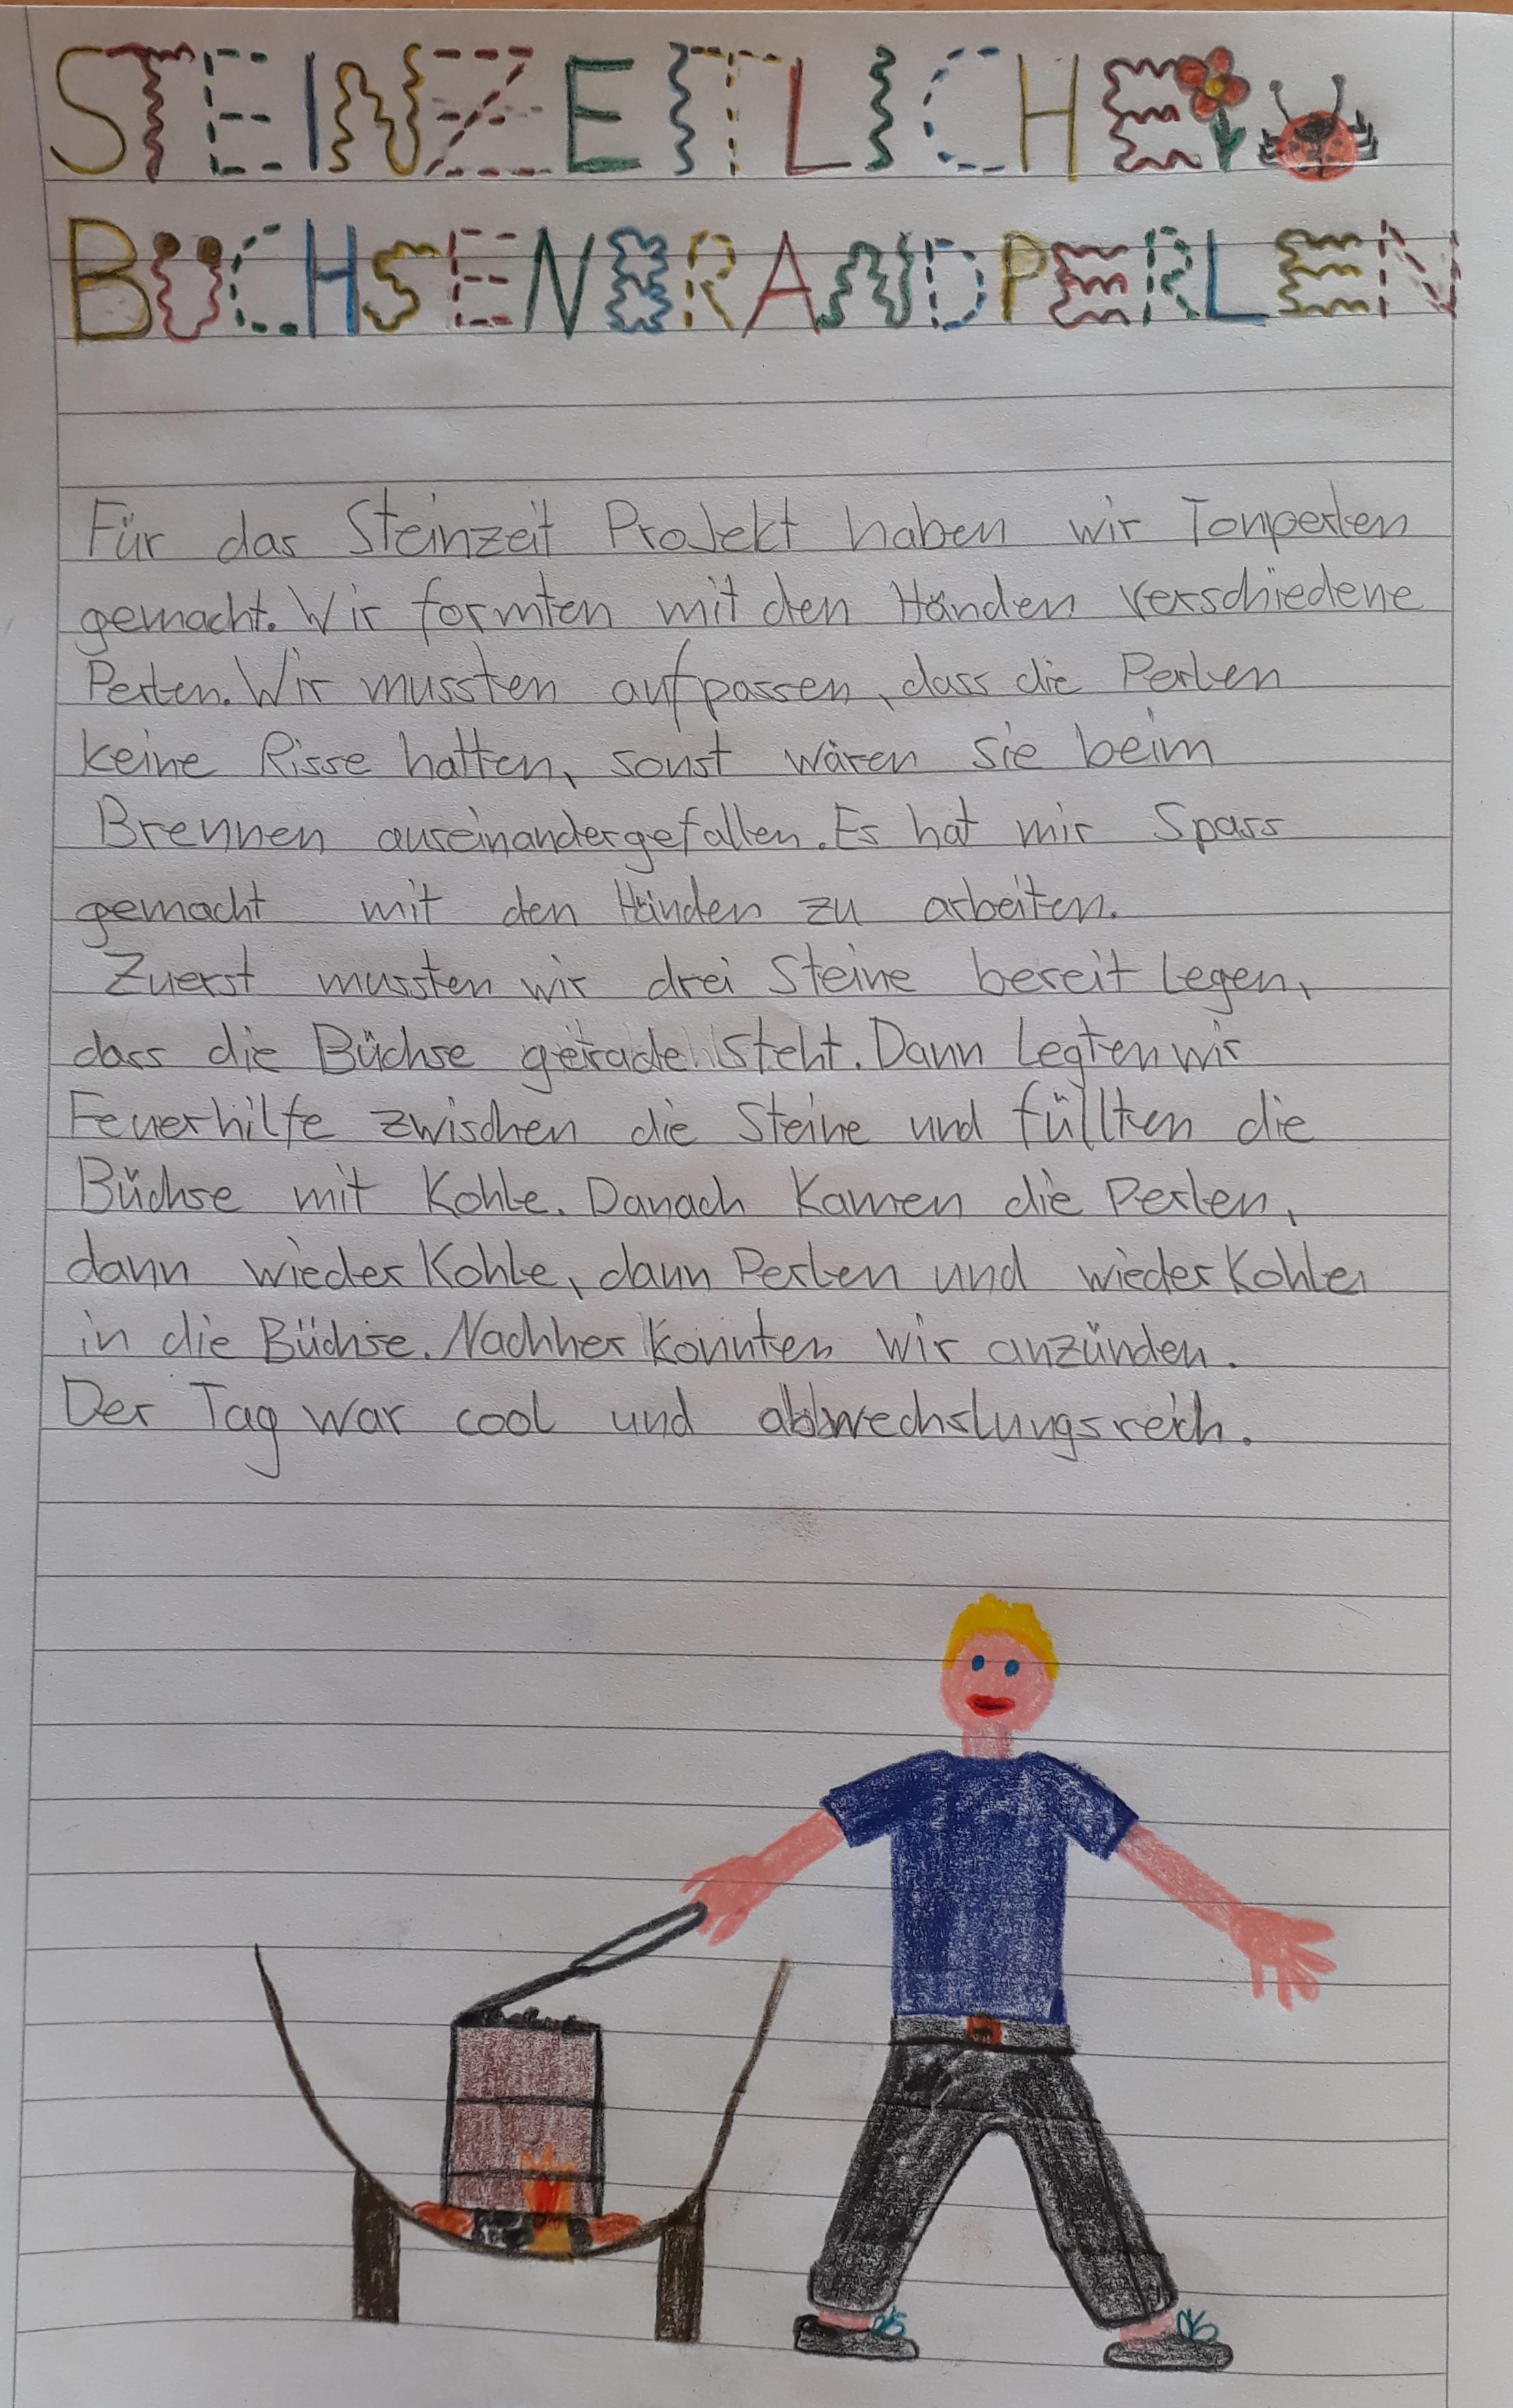 STEINZEITLICHE
BÜCHSENBRANDPERLEN
Für das Steinzeit Projekt haben wir Tonperlen
gemacht. Wir formten mit den Händen verschiedene
Perlen. Wir mussten aufpassen, dass die Perlen
keine Risse hatten, sonst wären sie beim
Brennen auseinandergefallen. Es hat mir Spass
gemacht mit den Händen zu arbeiten.
Zuerst mussten wir drei Steine bereit legen,
dass die Büchse gerade steht. Dann legten wir
Feuerhilfe zwischen die Steine und füllten die
Büchse mit Kohle. Danach kamen die Perlen,
dann wieder Kohle, dann Perlen und wieder Kohle,
in die Büchse. Nachher konnten wir anzünden.
Der Tag war cool und abwechslungsreich.